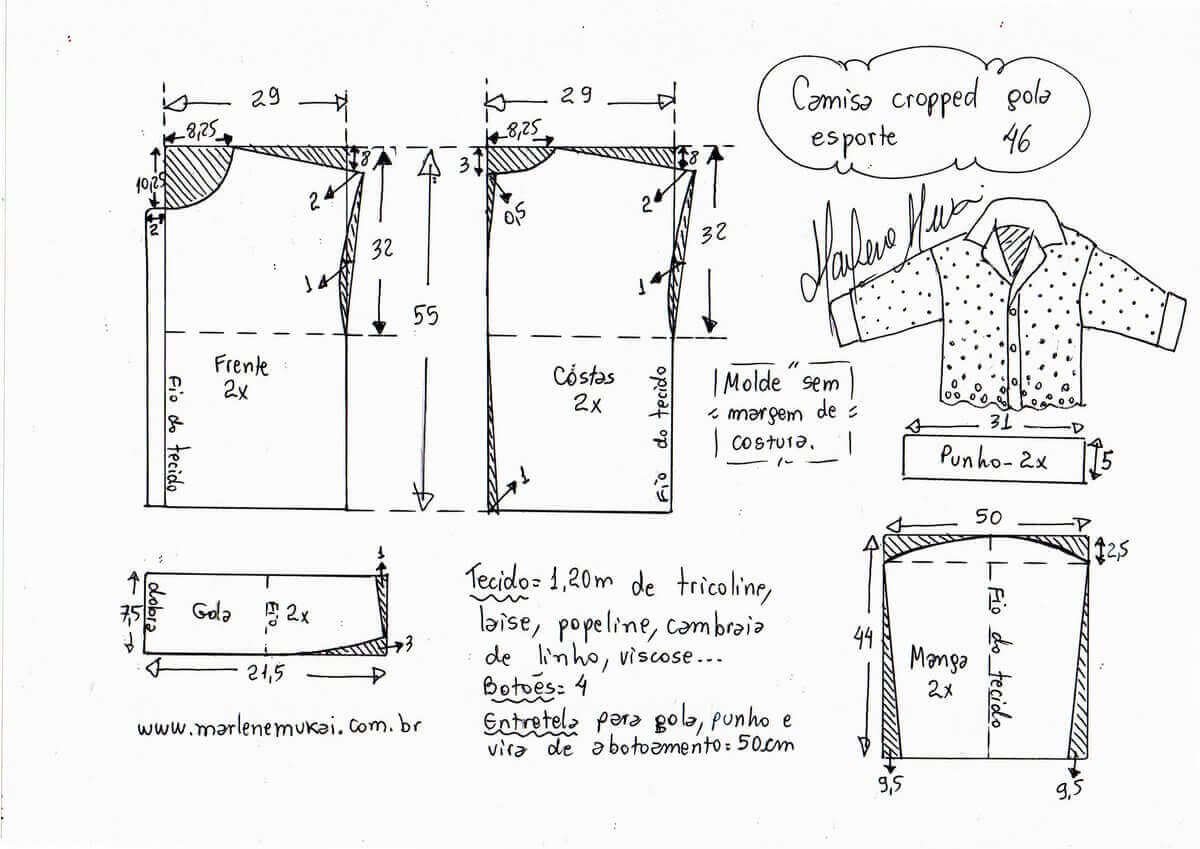 Camisa cropped gola
esporte 46
Marlene Mukai
29
8,25
10,25
2
8
2
32
1
55
Frente
2x
Fio do tecido
29
8,25
3
0,5
8
2
32
1
Cóstas
2x
Fio do tecido
1
Molde sem
margem de
costura.
31
Punho-2x
5
50
2,5
44
Manga
2x
Fio do tecido
9,5
9,5
1
7,5
dobra
Gola
Fio
2x
3
21,5
www.marlenemukai.com.br
Tecido=1,20m de tricoline,
laise, popeline, cambraia
de linho, viscose...
Botoẽs=4
Entretela para gola, punho e
vira de abotoamento=50cm